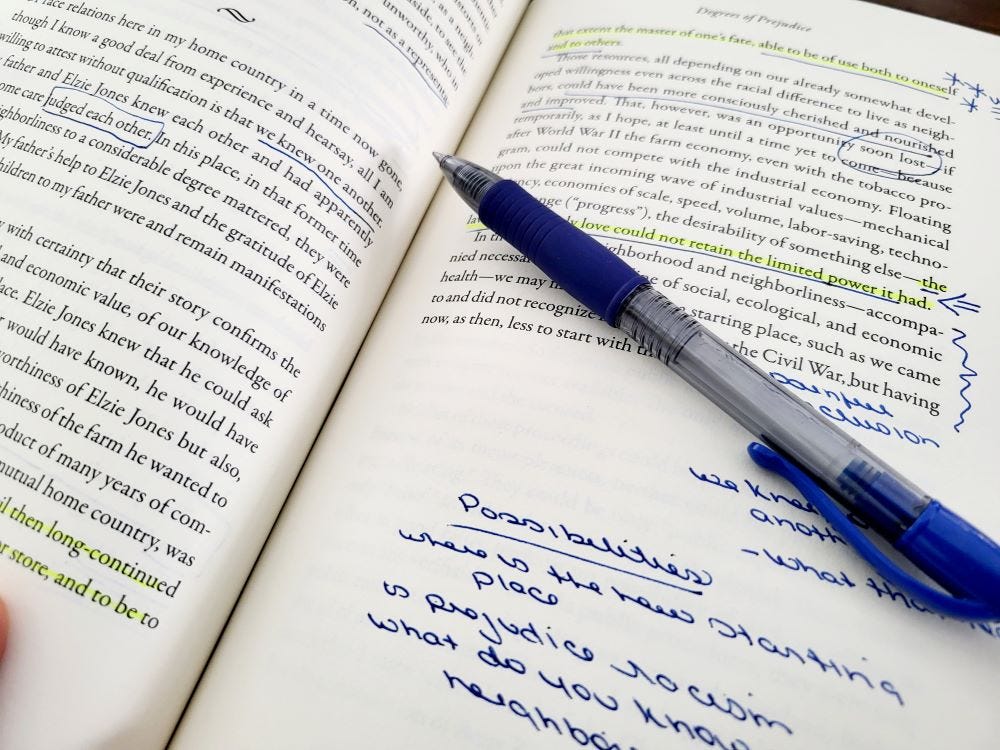 race relations here in my home country in a time now gone,
though I know a good deal from experience and hearsay, all I am
willing to attest without qualification is that we knew one another.
father and Elzie Jones knew each other and had apparently
some care judged each other. In this place, in that former time
neighborliness to a considerable degree mattered, they were
My father's help to Elzie Jones and the gratitude of Elzie
children to my father were and remain manifestations
with certainty that their story confirms the
and economic value, of our knowledge of
Elzie Jones knew that he could ask
would have known, he would have
worthiness of Elzie Jones but also,
of the farm he wanted to
product of many years of com-
mutual home country, was
then long-continued
store, and to be to
aside, to see the
unworthy, who is
not, not as a represent
Degrees of Prejudice
that extent the master of one's fate, able to be of use both to oneself
and to others.
Those resources, all depending on our already somewhat devel-
oped willingness even across the racial difference to live as neigh-
bors, could have been more consciously cherished and nourished
and improved. That, however, was an opportunity soon lost—if
temporarily, as I hope, at least until a time yet to come—because
after World War II the farm economy, even with the tobacco pro-
gram, could not compete with the industrial economy. Floating
upon the great incoming wave of industrial values—mechanical
economies of scale, speed, volume, labor-saving, techno-
("progress"), the desirability of something else—the
love could not retain the limited power it had.
In
neighborhood and neighborliness—accompa-
nied of social, ecological, and economic
health—we may starting place, such as we came
to and did not recognize the Civil War, but having
now, as then, less to start with
painful
we
-what
Possibilities
where is the new starting
place
is prejudice racism
what do you know